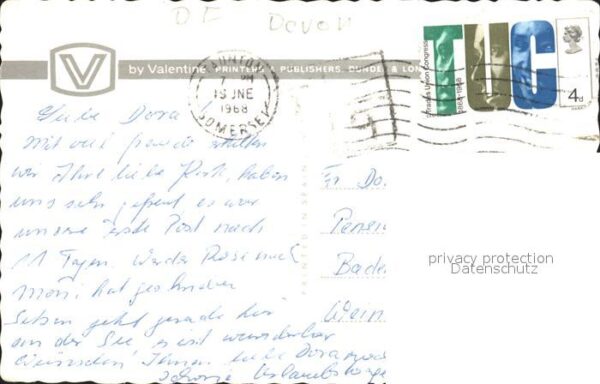 DE Devon
by Valentine PRINTERS & PUBLISHERS. DUNDEE & LON
TAUNTON
JNE
1968
SOMERSET
Trades Union Congress
1868-1968
TUC
4d
PRINTED IN SPAIN
Liebe Dora
Mit viel Freude erhielten
wir Ihre liebe Post, haben
uns sehr gefreut es war
unsere erste Post nach
11 Tagen. Weder Rosi noch
Moni hat geschrieben
Sitzen jetzt gerade hier
an der See, es ist wunderbar
wünschen Ihnen liebe Dora
schöne Urlaubstage
Pensi
Bade
Wein
privacy protection
Datenschutz